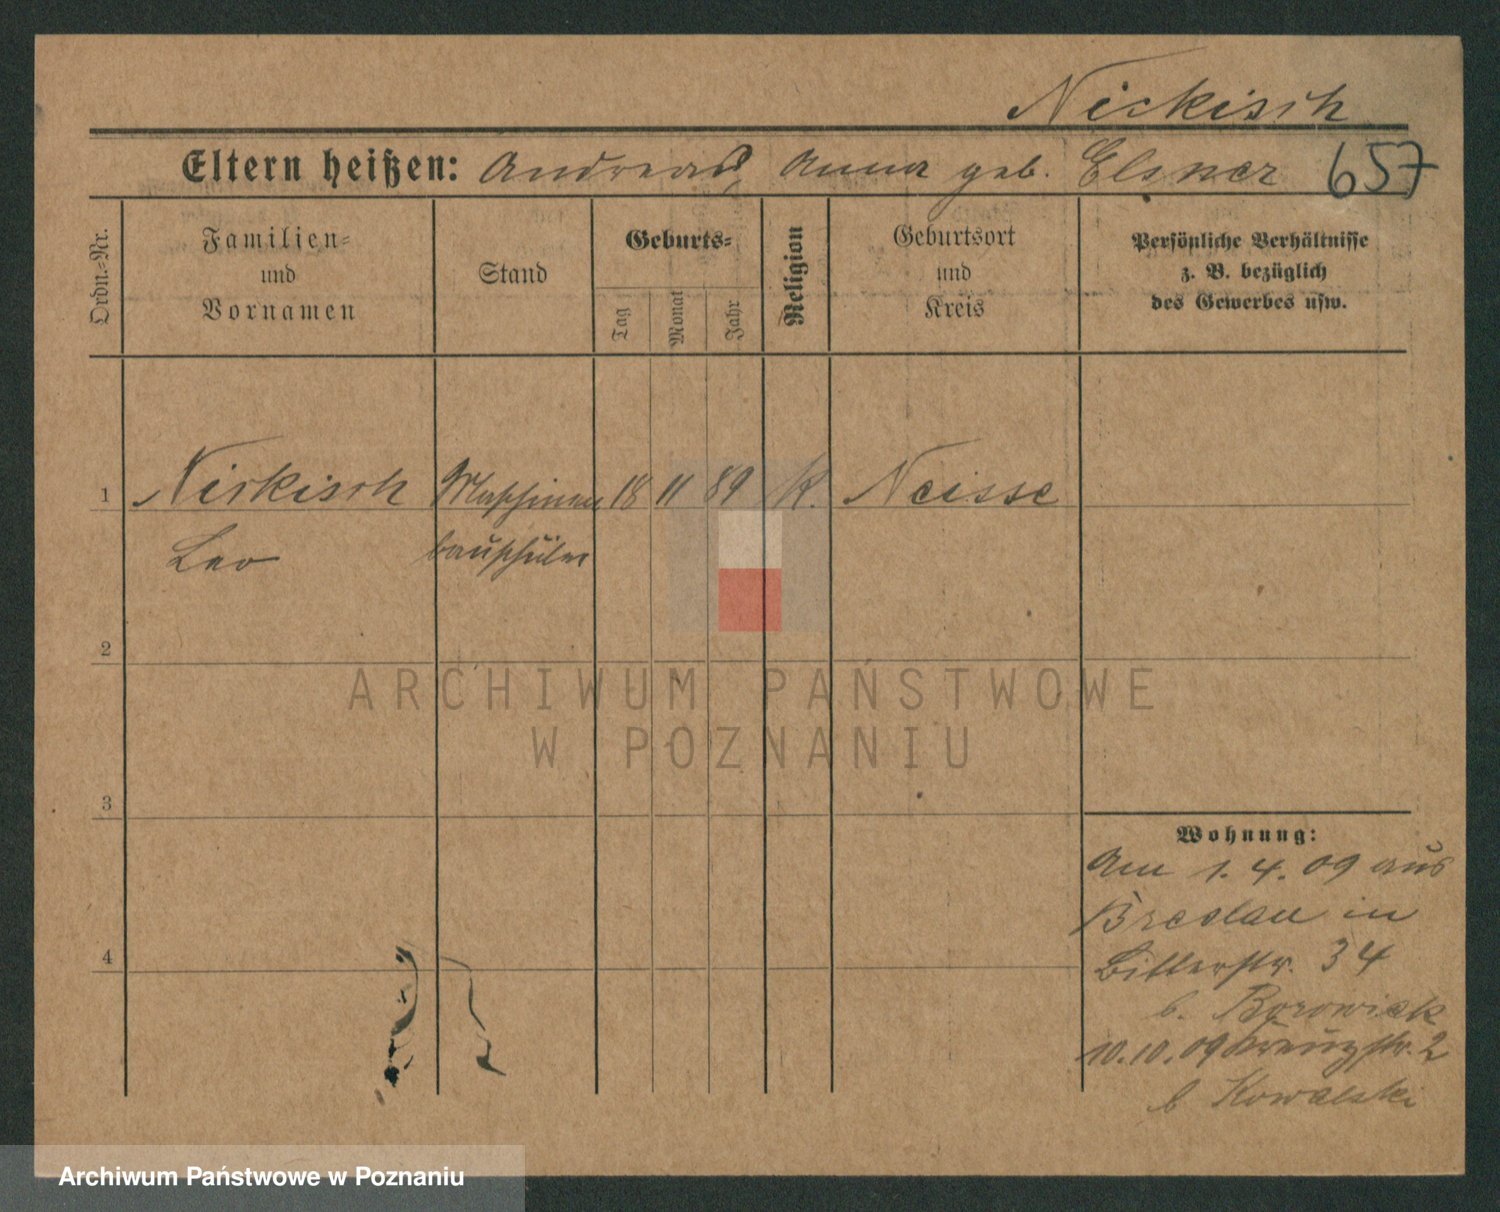 Nickisch
Eltern heißen: Andreas, Anna geb. Elsner 657
Ordn.-Nr.
Familien-
und
Vornamen
Stand
Geburts-
Tag
Monat
Jahr
Religion
Geburtsort
und
Kreis
Persönliche Verhältnisse
z. B. bezüglich
des Gewerbes usw.
1 Nickisch Maschinen 18 11 89 K. Neisse
Leo bauschüler
2
ARCHIWUM PAŃSTWOWE
W POZNANIU
3
Wohnung:
Am 1. 4. 09 aus
Breslau in
Bitterstr. 34
4
b. Borowiak
10.10.09 Kreuzstr. 2
b Kowalski
Archiwum Państwowe w Poznaniu